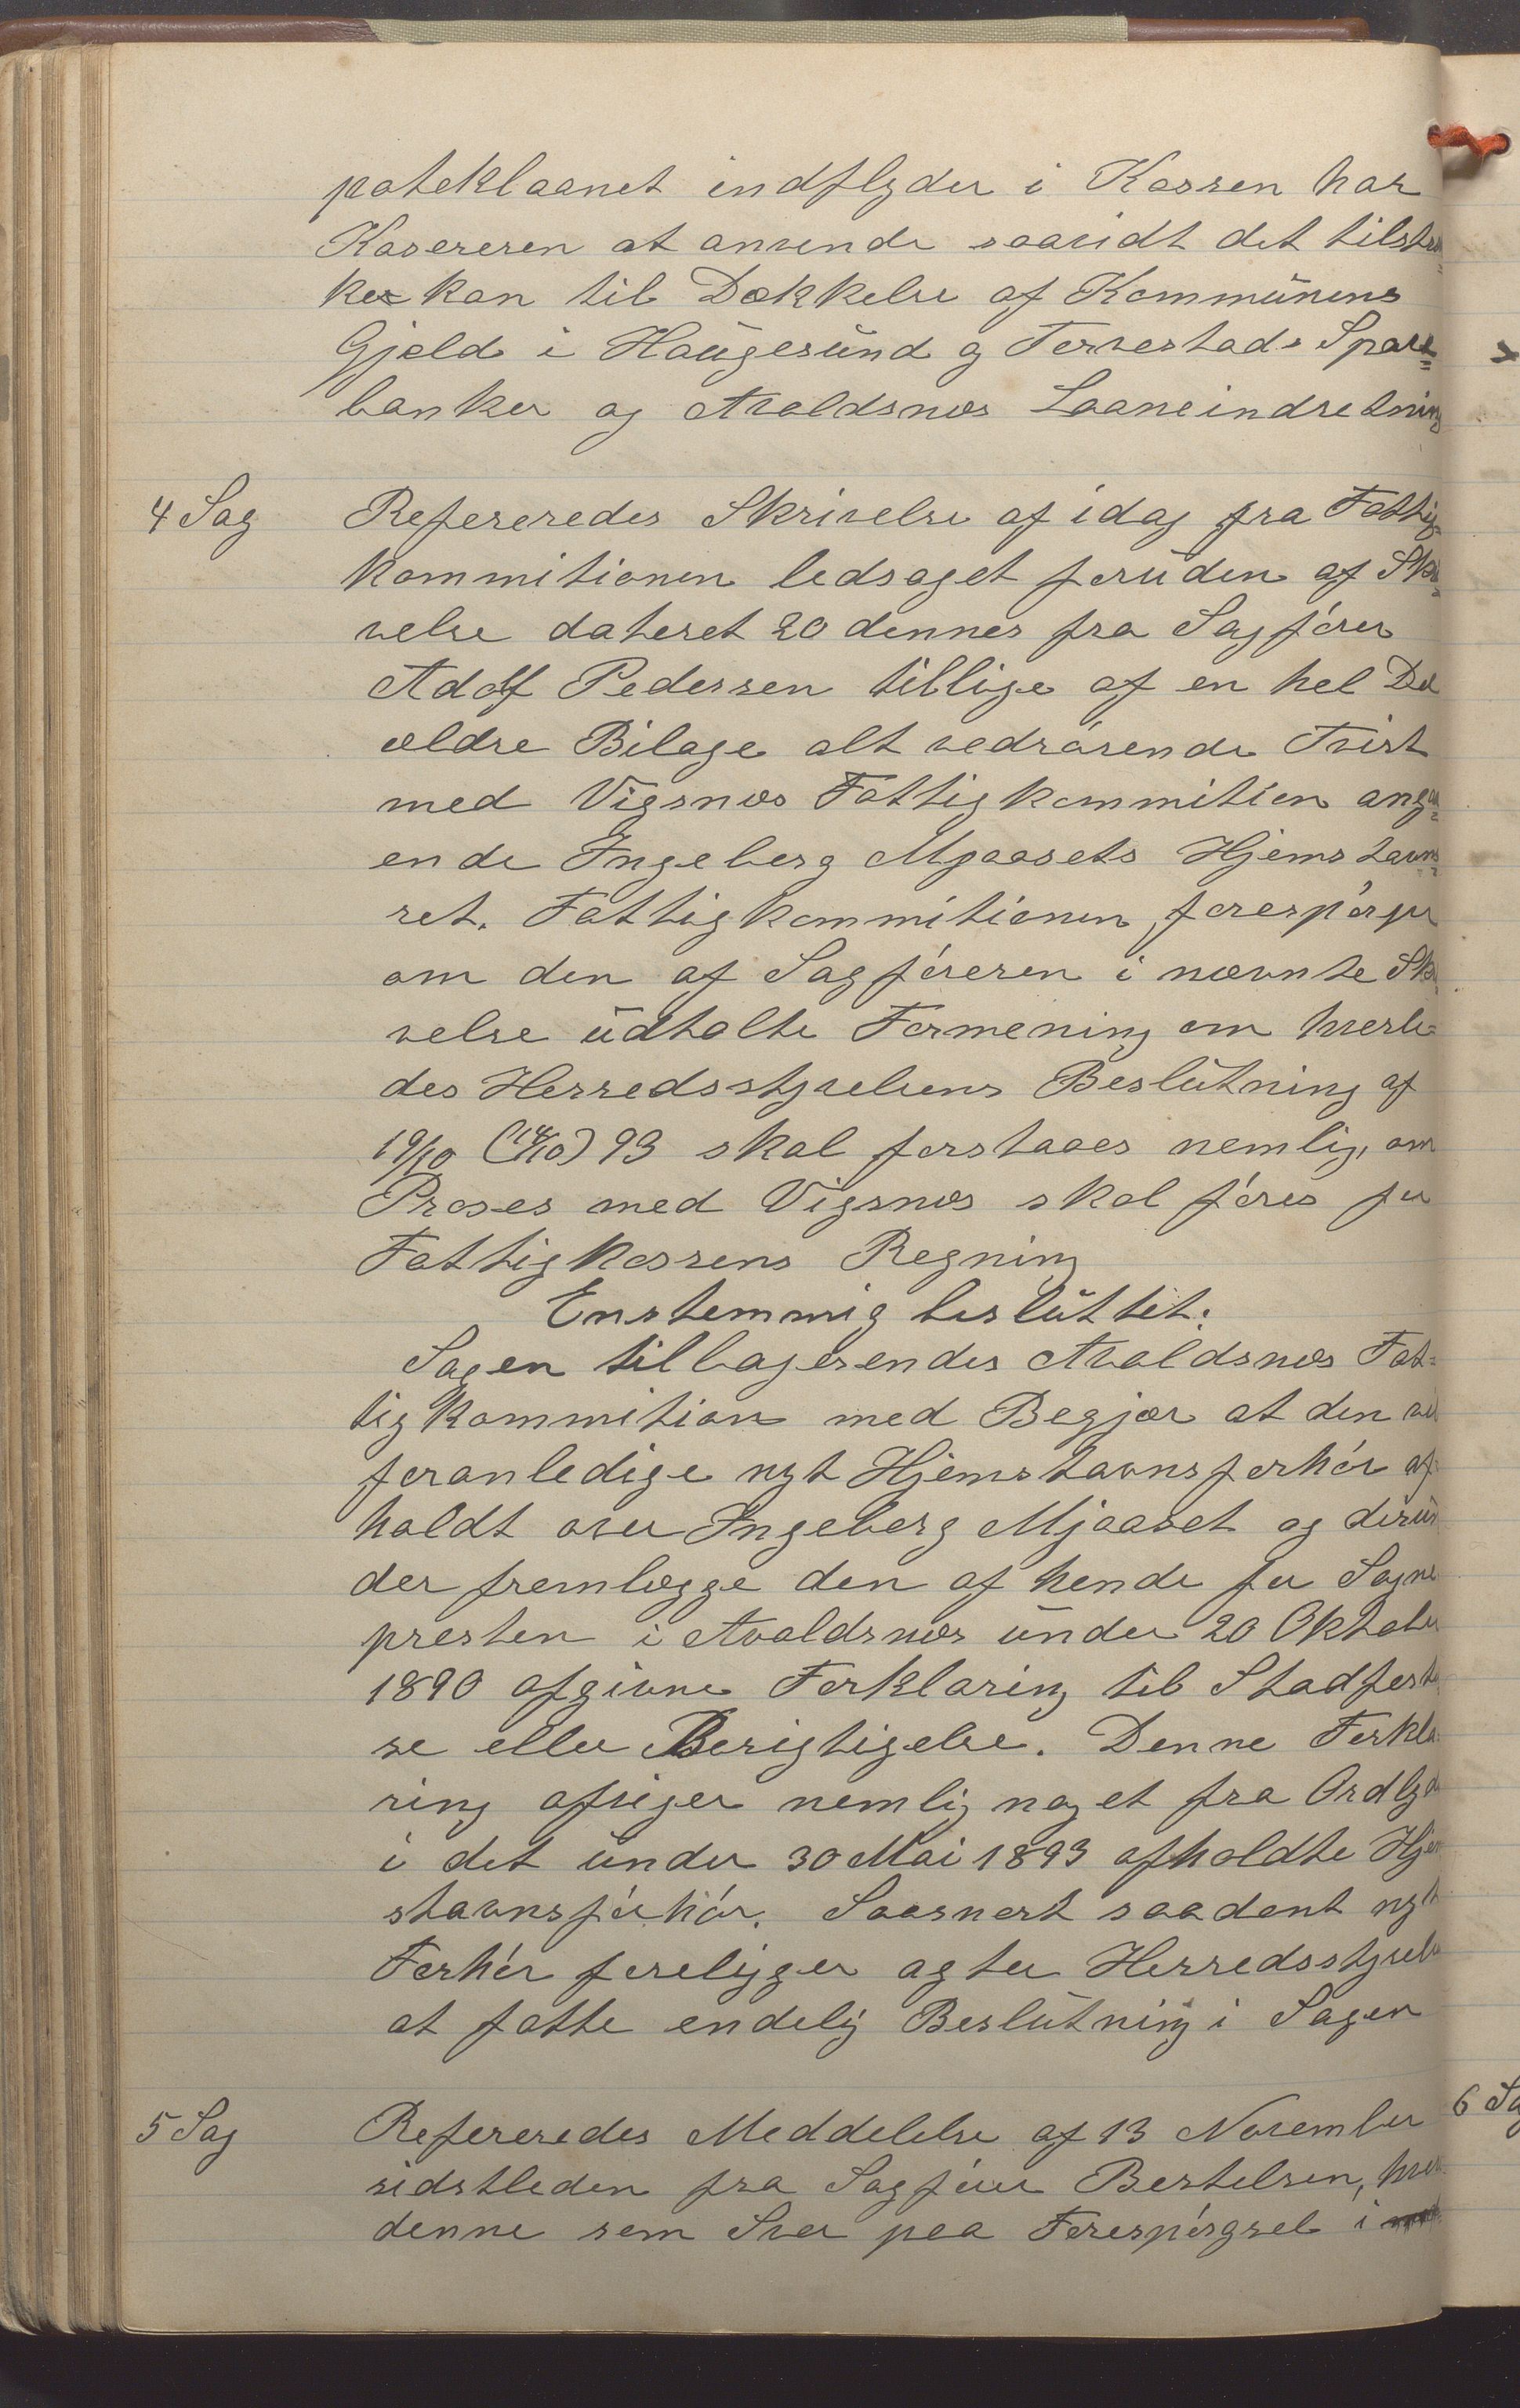 poteklaanet indflyder i Kassen har
Kasereren at anvende saavidt det tilstræk=
ke kan til Dækkelse af Kommunens
Gjeld i Haugesund og Torvestads Spare=
banker og Avaldsnæs Laaneindretning
4 Sag
Refereredes Skrivelse af idag fra Fattig=
kommitionen ledsaget foruden af Skri=
velse dateret 20 dennes fra Sagfører
Adolf Pedersen tillige af en hel Del
ældre Bilage alt vedrørende Tvist
med Vigsnæs Fattigkommition angaa=
ende Ingeborg Mjaasets Hjemstavns=
ret. Fattigkommitionen forespørger
om den af Sagføreren i nævnte Skri=
velse udtalte Formening om hvorle=
des Herredsstyrelsens Beslutning af
19/10 (14/10) 93 skal forstaaes nemlig, om
Proses med Vigsnæs skal føres for
Fattigkassens Regning
Enstemmig besluttet:
Sagen tilbagesendes Avaldsnæs Fat=
tigkommition med Begjær at den vil
foranledige nyt Hjemstavnsforhør af=
holdt over Ingeborg Mjaaset og derun
der fremlægge den af hende for Sogne
presten i Avaldsnæs under 20 Oktober
1890 afgivne Forklaring til Stadfestel
se eller Berigtigelse. Denne Forkla
ring afviger nemlig noget fra Ordlyden
i det under 30 Mai 1893 afholdte Hjem
stavnsforhør. Saasnart saadant nyt
Forhør foreligger agter Herredsstyrelsen
at fatte endelig Beslutning i Sagen
5 Sag
Refereredes Meddelelse af 13 November
sidstleden fra Sagfører Bertelsen, hvor
denne som Svar paa Forespørgsel i
6 Sag